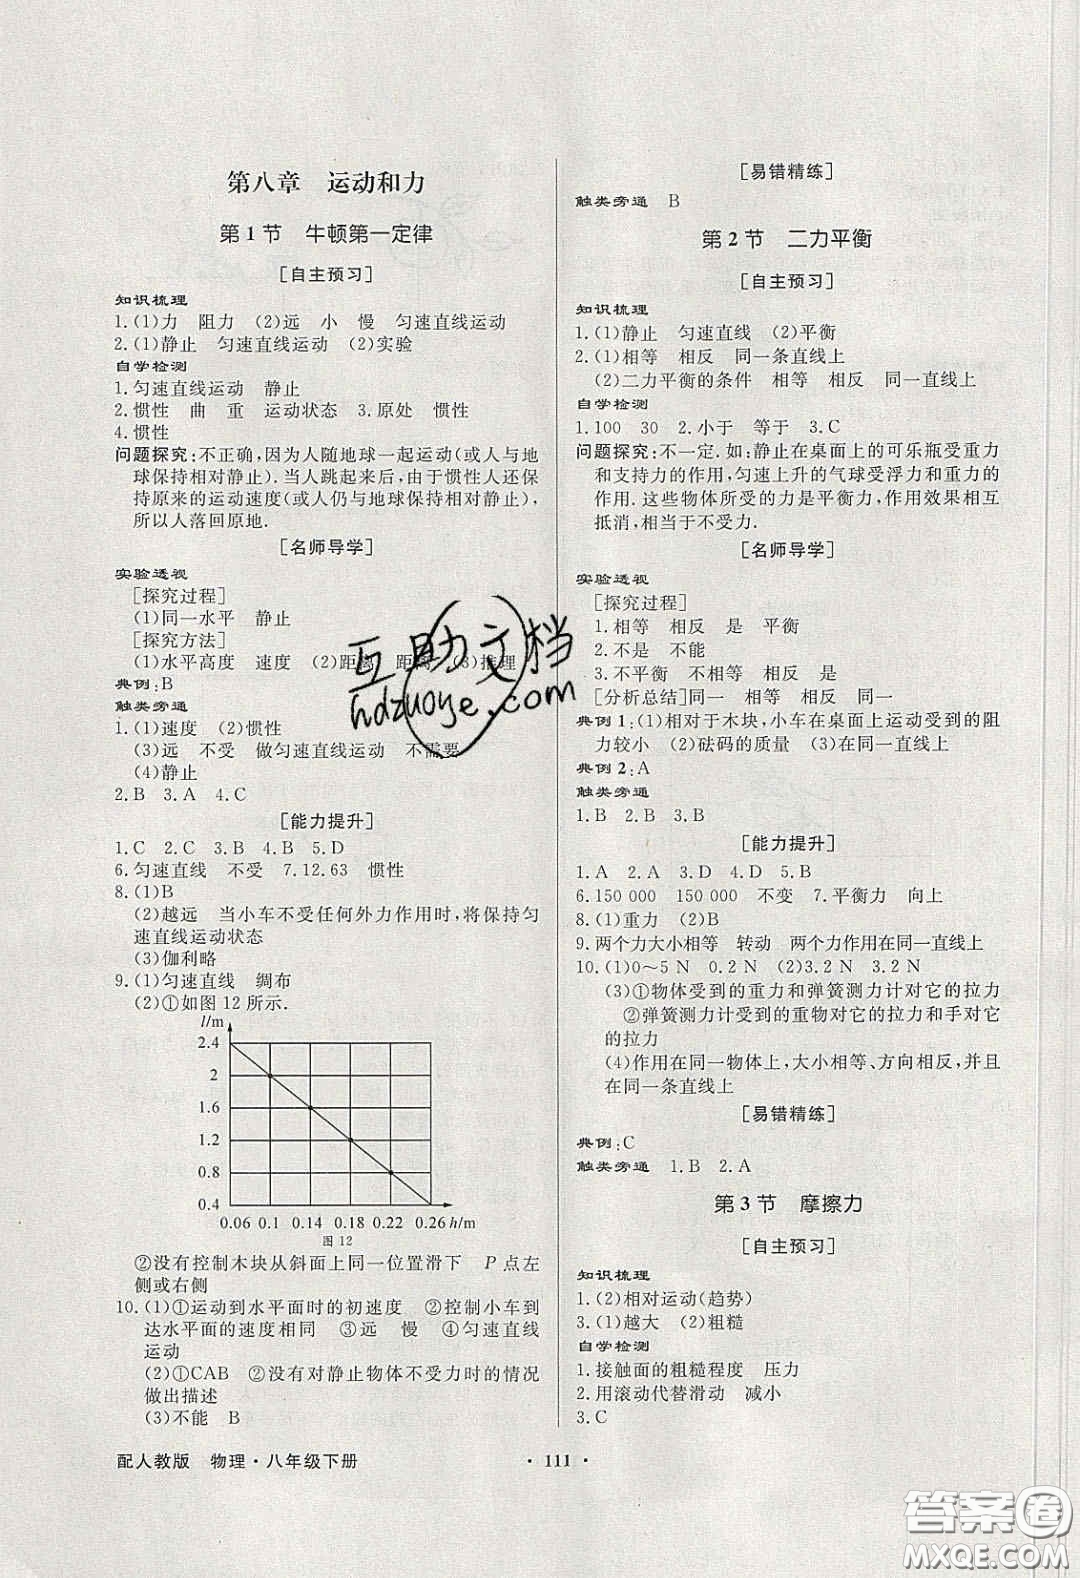 第八章　运动和力
第1节　牛顿第一定律
[自主预习]
知识梳理
1.(1)力　阻力　(2)远　小　慢　匀速直线运动
2.(1)静止　匀速直线运动　(2)实验
自学检测
1.匀速直线运动　静止
2.惯性　曲　重　运动状态　3.原处　惯性
4.惯性
问题探究:不正确,因为人随地球一起运动(或人与地
球保持相对静止).当人跳起来后,由于惯性人还保
持原来的运动速度(或人仍与地球保持相对静止),
所以人落回原地.
[名师导学]
实验透视
[探究过程]
(1)同一水平　静止
[探究方法]
(1)水平高度　速度　(2)距离　距离　(3)推理
典例:B
触类旁通
1.(1)速度　(2)惯性
(3)远　不受　做匀速直线运动　不需要
(4)静止
2.B　3.A　4.C
[能力提升]
1.C　2.C　3.B　4.B　5.D
6.匀速直线　不受　7.12.63　惯性
8.(1)B
(2)越远　当小车不受任何外力作用时,将保持匀
速直线运动状态
(3)伽利略
9.(1)匀速直线　绸布
(2)①如图12所示.
l/m
2.4
2
1.6
1.2
0.8
0.4
0.06 0.1 0.14 0.18 0.22 0.26 h/m
图12
②没有控制木块从斜面上同一位置滑下　P点左
侧或右侧
10.(1)①运动到水平面时的初速度　②控制小车到
达水平面的速度相同　③远　慢　④匀速直线
运动
(2)①CAB　②没有对静止物体不受力时的情况
做出描述
(3)不能　B
[易错精练]
触类旁通　B
第2节　二力平衡
[自主预习]
知识梳理
1.(1)静止　匀速直线　(2)平衡
2.(1)相等　相反　同一条直线上
(2)二力平衡的条件　相等　相反　同一直线上
自学检测
1.100　30　2.小于　等于　3.C
问题探究:不一定.如:静止在桌面上的可乐瓶受重力
和支持力的作用,匀速上升的气球受浮力和重力的
作用.这些物体所受的力是平衡力,作用效果相互
抵消,相当于不受力.
[名师导学]
实验透视
[探究过程]
1.相等　相反　是　平衡
2.不是　不能
3.不平衡　不相等　相反　是
[分析总结]同一　相等　相反　同一
典例1:(1)相对于木块,小车在桌面上运动受到的阻
力较小　(2)砝码的质量　(3)在同一直线上
典例2:A
触类旁通
1.B　2.B　3.B
[能力提升]
1.A　2.A　3.D　4.D　5.B
6.150 000　150 000　不变　7.平衡力　向上
8.(1)重力　(2)B
9.两个力大小相等　转动　两个力作用在同一直线上
10.(1)0～5 N　0.2 N　(2)3.2 N　3.2 N
(3)①物体受到的重力和弹簧测力计对它的拉力
②弹簧测力计受到的重物对它的拉力和手对它
的拉力
(4)作用在同一物体上,大小相等、方向相反,并且
在同一条直线上
[易错精练]
典例:C
触类旁通　1.B　2.A
第3节　摩擦力
[自主预习]
知识梳理
1.(2)相对运动(趋势)
3.(1)越大　(2)粗糙
自学检测
1.接触面的粗糙程度　压力
2.用滚动代替滑动　减小
3.C
互助文档
hdzuoye.com
配人教版　物理·八年级下册
· 111 ·
答案圈
MXQE.COM